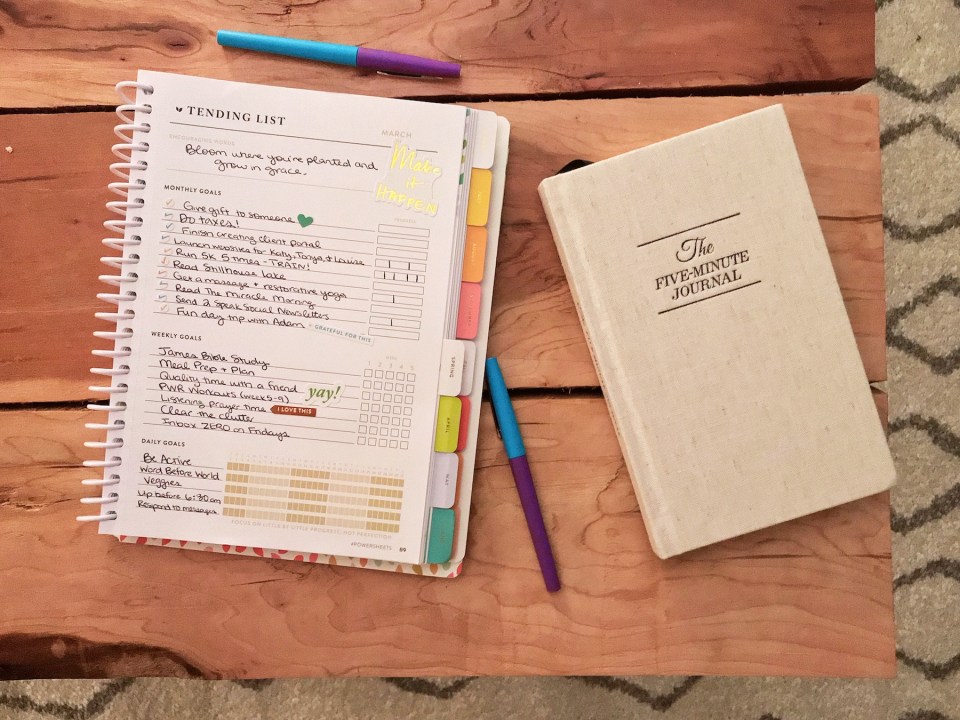 TENDING LIST
MARCH
ENCOURAGING WORDS
Bloom where you're planted and
grow in grace.
Make
it
HAPPEN
MONTHLY GOALS
PROGRESS
Give gift to someone
Do taxes!
Finish creating client portal
Launch websites for Katy, Tonya, + Louise
Run 5K 5 times - TRAIN!
Read Stillhouse Lake
Get a massage + restorative yoga
Read The Miracle Morning
Send 2 Speak Social Newsletters
Fun day trip with Adam
GRATEFUL FOR THIS
WEEKLY GOALS
1 2 3 4 5
James Bible Study
Meal Prep + Plan
Quality time with a friend
yay!
PWR Workouts (week 5-9)
Listening prayer time
I LOVE THIS
Clear the clutter
Inbox ZERO on Fridays
DAILY GOALS
Be Active
Word Before World
Veggies
Up before 6:30am
Respond to messages
FOCUS ON LITTLE BY LITTLE PROGRESS, NOT PERFECTION
#POWERSHEETS 89
SPRING
APRIL
MAY
The
FIVE-MINUTE
JOURNAL